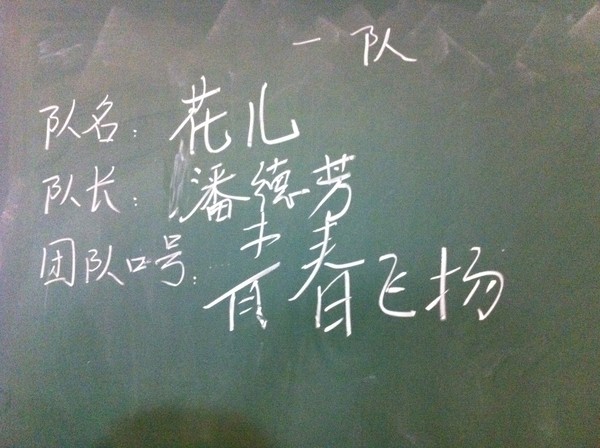 一队
队名：花儿
队长：潘德芳
团队口号：青春飞扬